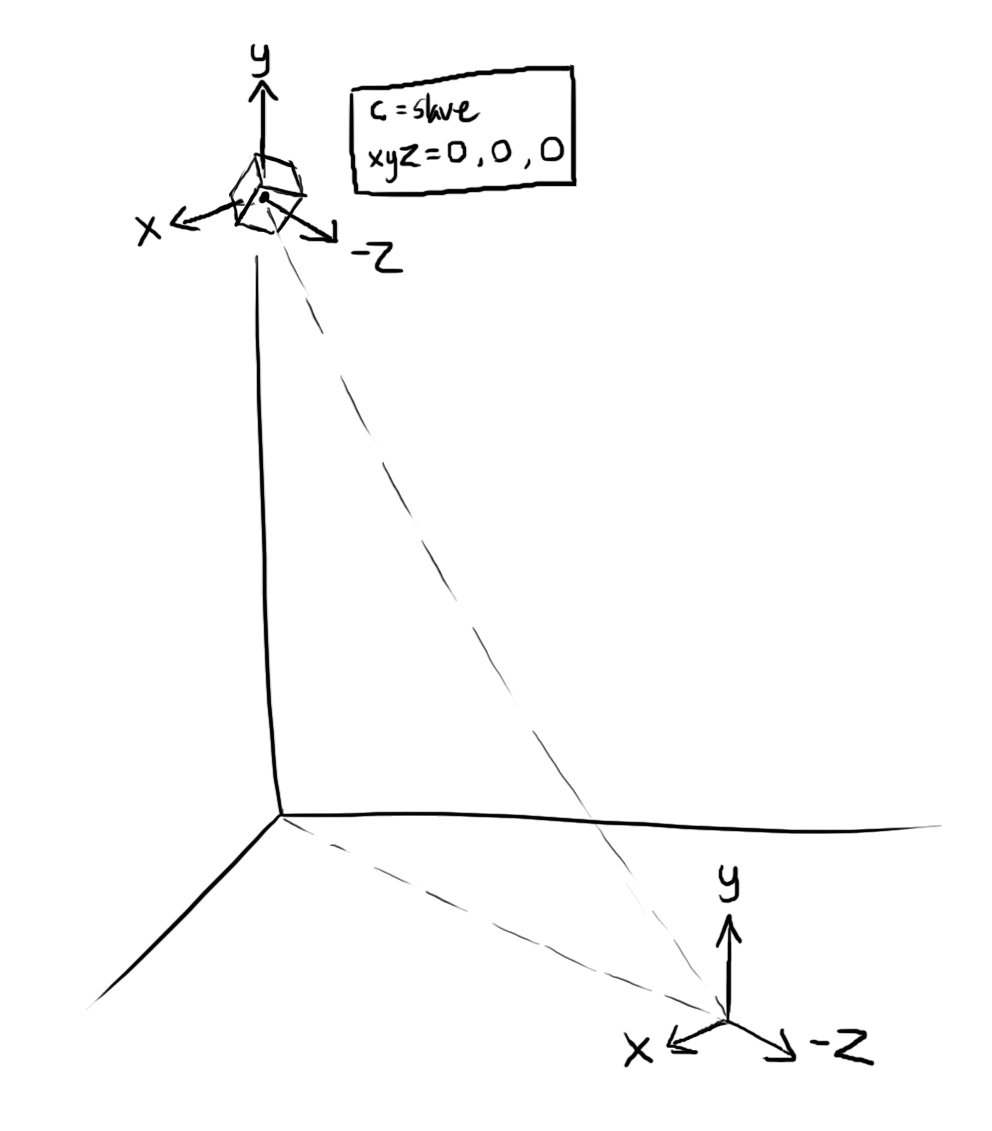 y
c = slave
xyz = 0, 0, 0
x
-z
y
x
-z